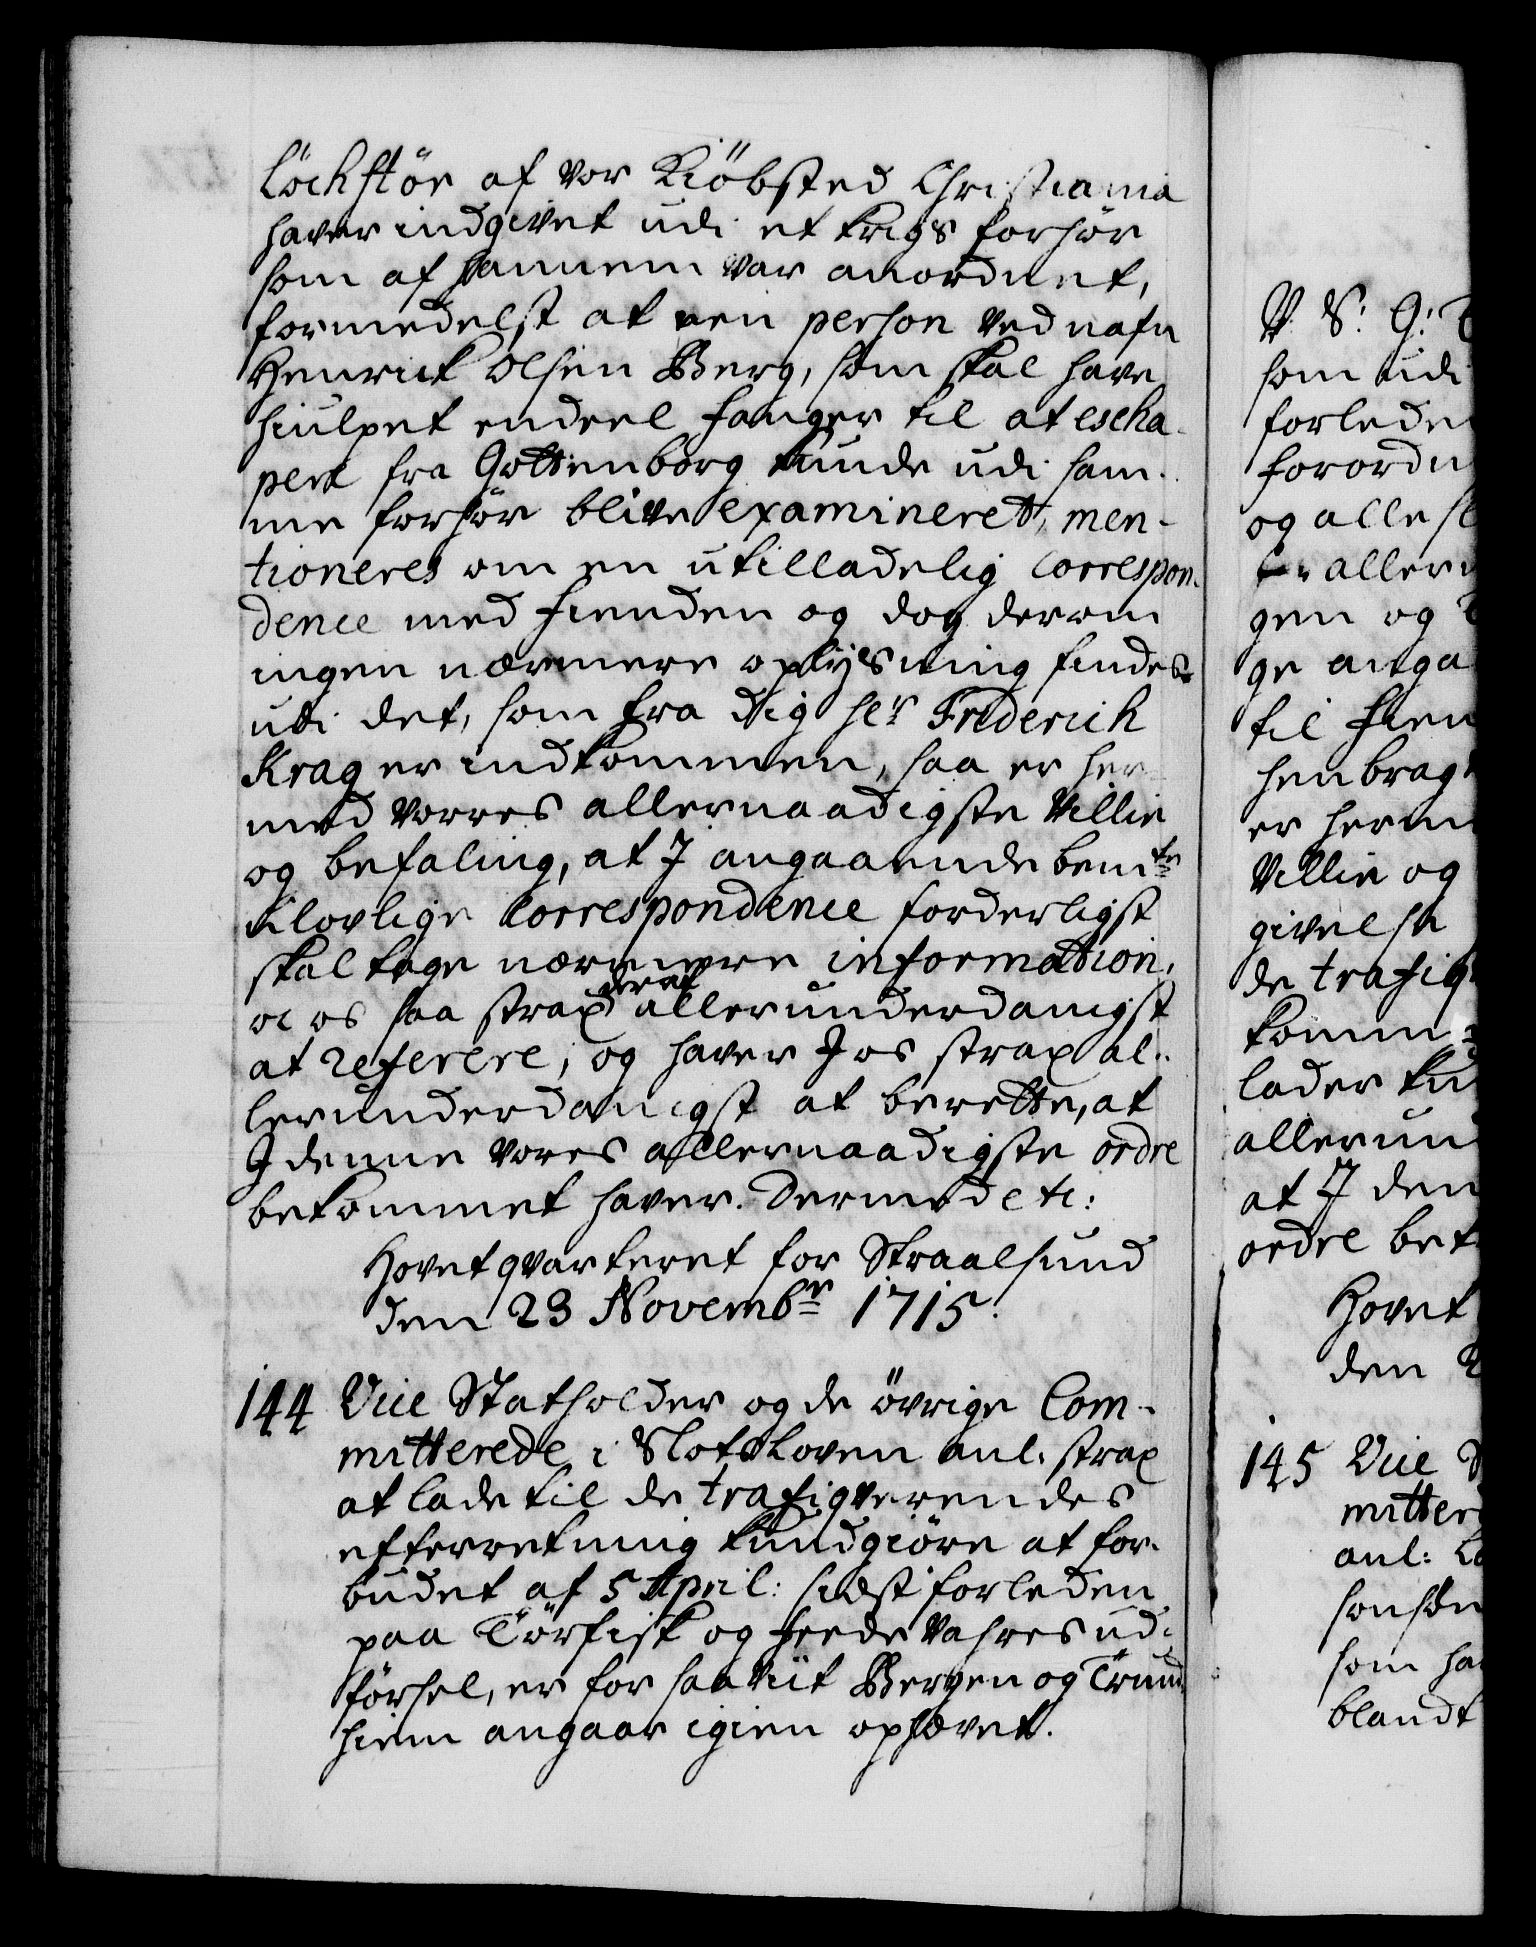 Löchstör af vor Kiöbsted Christiania
haver indgivet udi et krigs forhör
som af hannem var anordnet,
formedelst at een person ved nafn
Henrick Olsen Berg, som skal have
hiulpet endeel fanger til at escha-
pere fra Gottenborg kunde udi sam-
me forhör blive examineret, men-
tioneres om en utilladelig Correspon-
dence med fienden og dog derom
ingen nærmere oplysning findes
udi det, som fra dig hr Friderich
Krag er indkommen, saa er her-
med vorres allernaadigste Villie
og befaling, at I angaaende bemte
ulovlige Correspondence forderligst
skal tage nærmere information,
oc os saa strax deraf allerunderdanigst
at referere, og haver I os strax al-
lerunderdanigst at berette, at
I denne vores allernaadigste ordre
bekommet haver. Dermed etc:
Hovetqvarteret for Straalsund
den 23 Novembr 1715.
144 Vice Statholder og de övrige Com-
mitterede i Slotsloven anl: strax
at lade til de trafiqverendes
efterretning kundgiöre at for-
budet af 5 April: sidst forleden
paa Törfisk og feede vahres ud-
försel, er for saa viit Bergen og Trund-
hiem angaar igien ophævet.
V. S: G: T
som udi
forleden
forordn
og alle sl
allern
gen og
ge anga
til fien
henbrag
er herm
Villie og
givelse
de trafiq
komm
lader ku
allerun
at I den
ordre bek
Hovet
den 2
145 Vice S
mittere
anl:
som ha
blandt